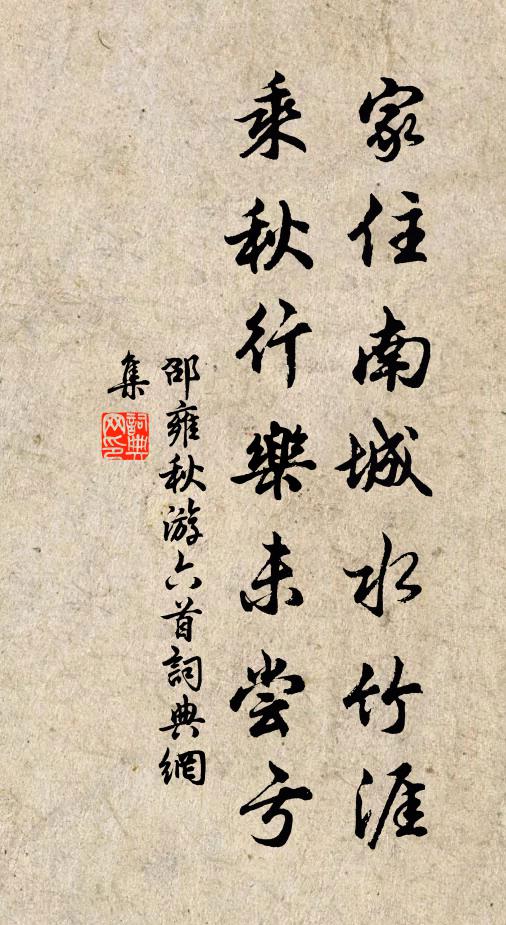 家住南城水竹涯
乘秋行樂未尝亏
邵雍秋游六首詞典網
集
詞典網印